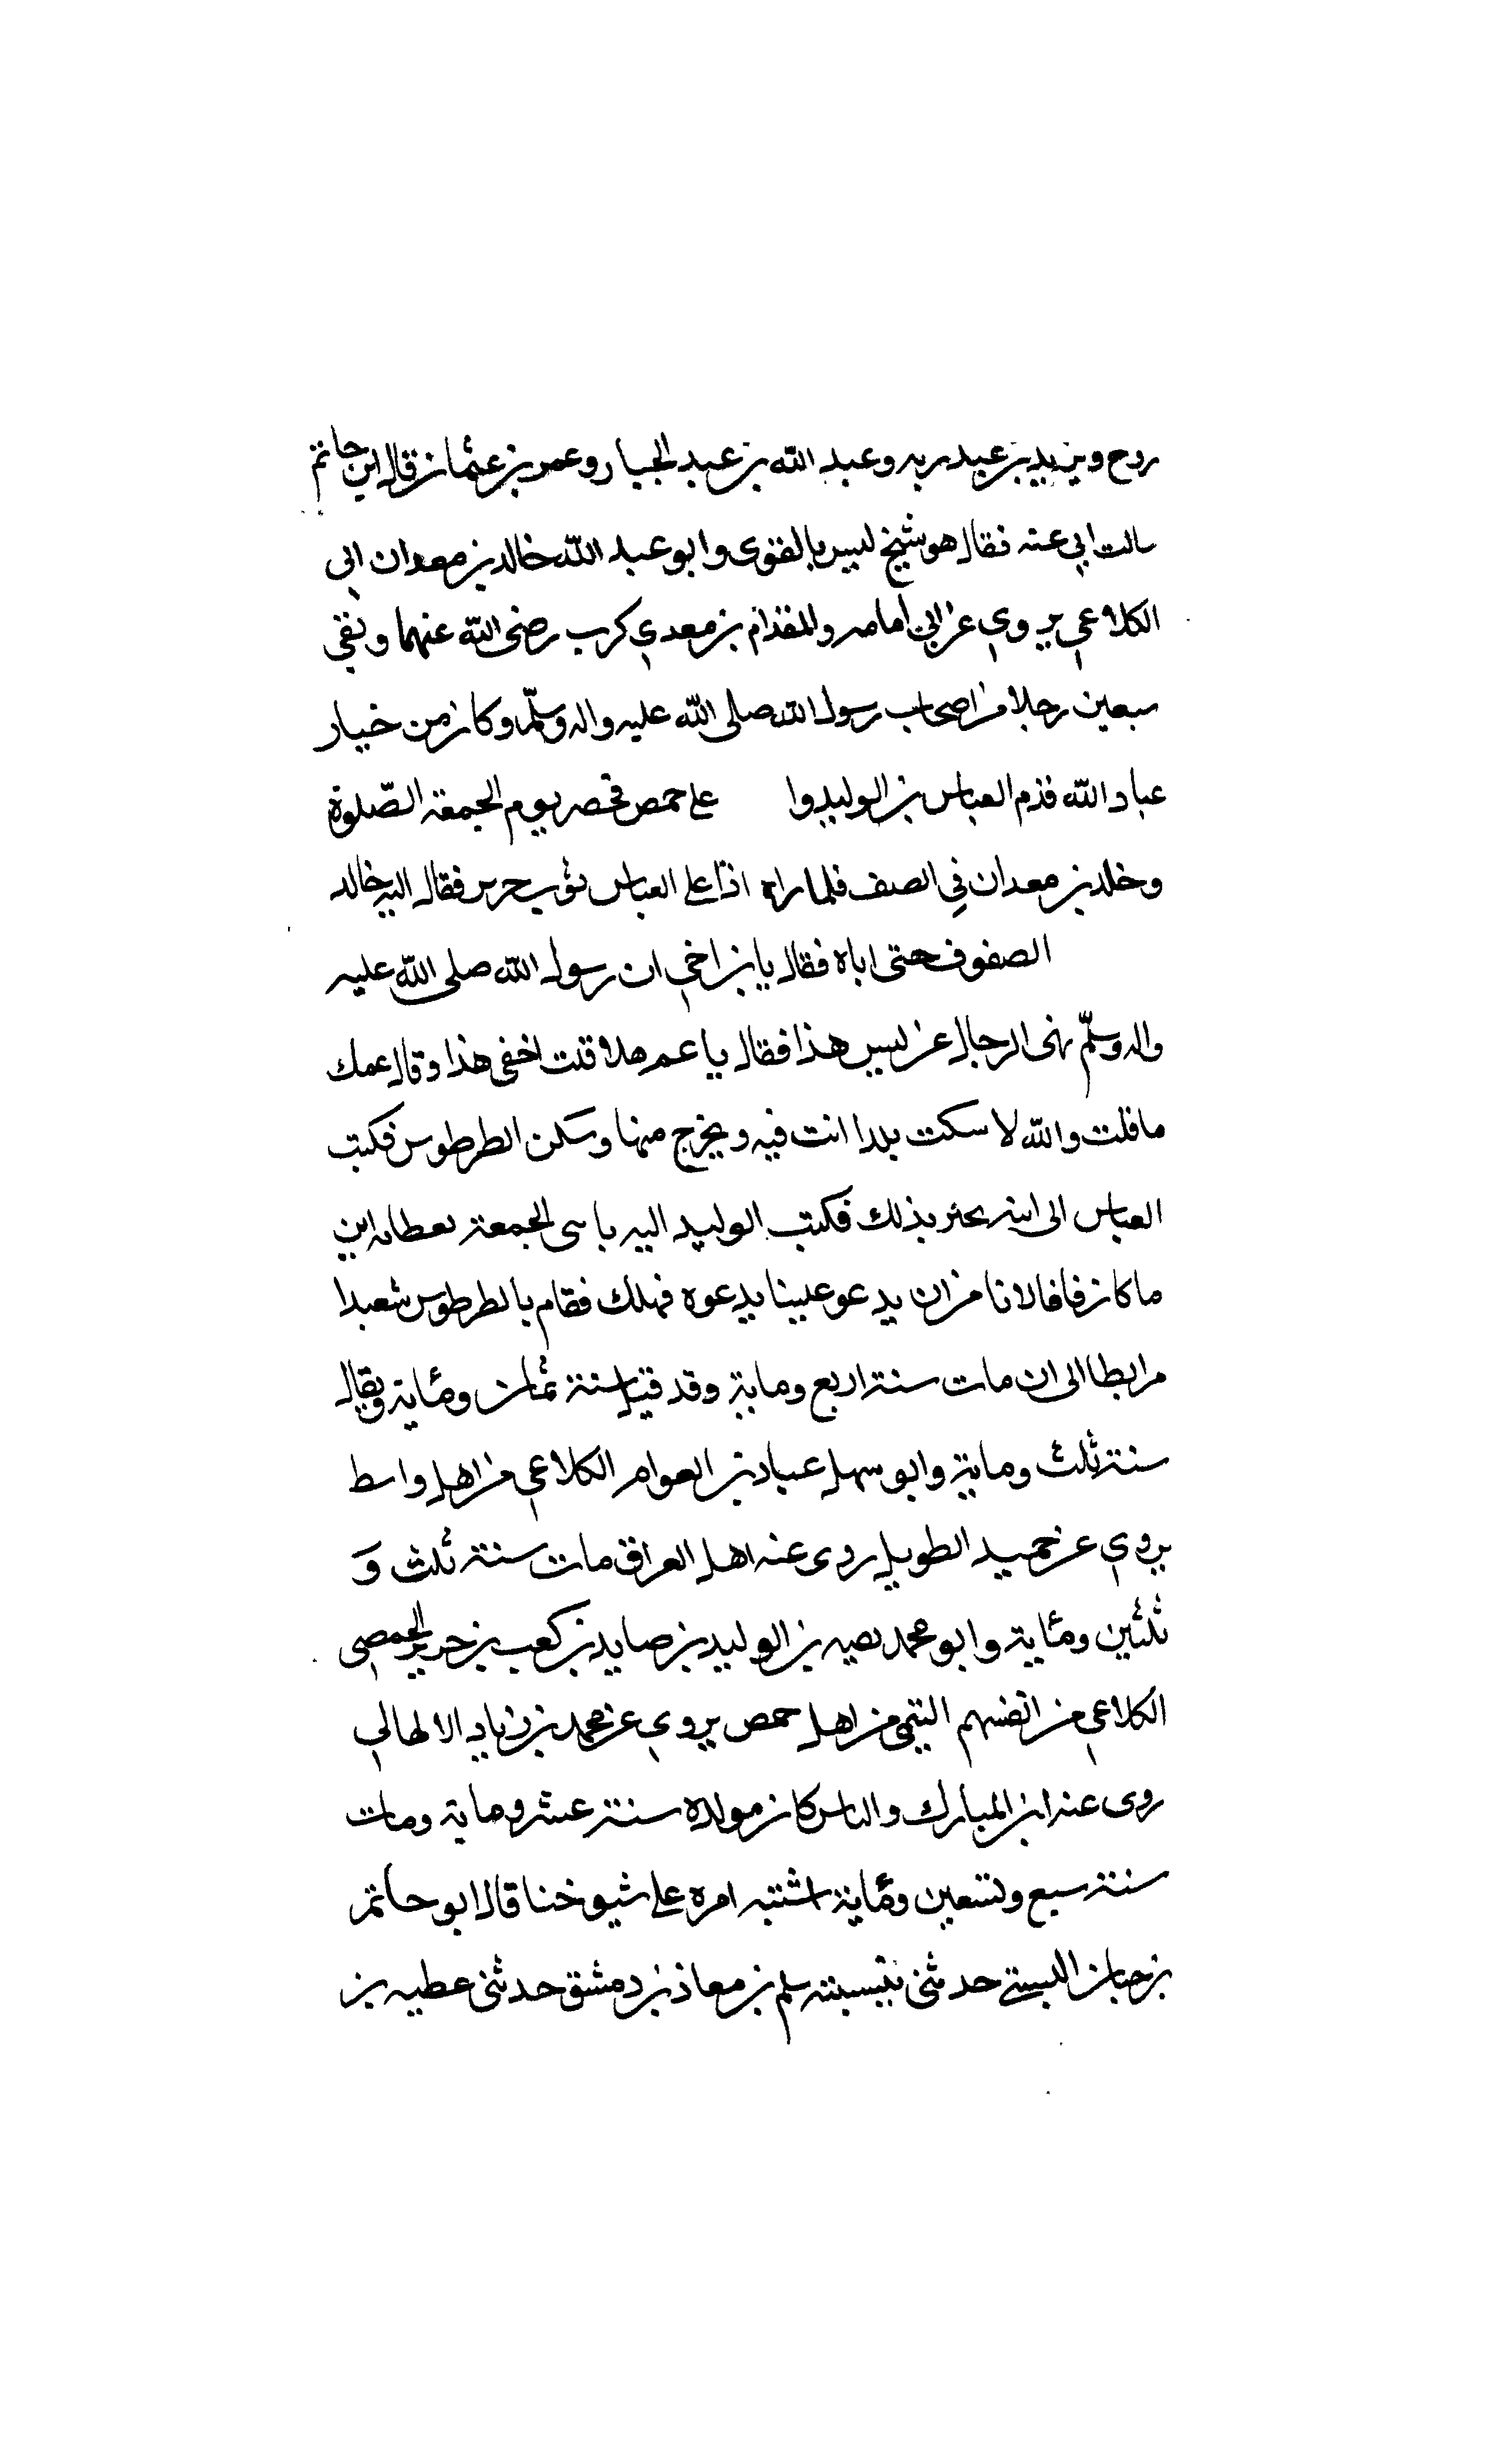 روح ويزيد بن عبد ربه وعبد الله بن عبد الجبار وعمر بن عثمان قال ابن حاتم
سالت ابي عنه فقال هو شيخ ليس بالقوى وابو عبد الله خالد بن معدان ابي
الكلاعي يروي عن ابي أمامه والمقدام بن معدي كرب رضى الله عنهما ولقى
سبعين رجلا من اصحاب رسول الله صلى الله عليه واله وسلّم وكان من خيار
عباد الله قدم العباس بن الوليد وا على حمص فحصر يوم الجمعة الصّلوة
وخلد بن معدان في الصف فلما راه اذا على العباس ثوب حرير فقال اليه خالد
الصفوف حتى اباه فقال يا بن اخي ان رسول الله صلى الله عليه
واله وسلّم نهى الرجال عن لبس هذا فقال يا عم هلا قلت اخفى هذا وقال عمك
ما قلت والله لا سكت بلدا انت فيه ويخرج منها وسكن الطرطوس فكتب
العباس الى ابنه بذلك فكتب الوليد اليه الجمعة ابن
ما كان فانا من ان يدعو علينا بدعوه فهلك فقام بالطرطوس
مرابطا الى ان مات سنة اربع وماية وقد قيل سنة ثمان ومئاية ويقال
سنة ثلث وماية وابو سهل عباد بن العوام الكلاعي من اهل واسط
يروي عن حميد الطويل روى عنه اهل العراق مات سنة ثلث وَ
ثلثين ومئاية وابو محمد بقيه بن الوليد بن صايد بن كعب بن حريز الحمصي
الكلاعي من انفسهم من اهل حمص يروي عن محمد بن زياد الالهالي
روى عنه ابن المبارك والناس كان مولده سنة عشر وماية ومات
سنة سبع وتسعين ومئاية اشتبه امره على شيوخنا قال ابو حاتم
بن حبان البستي حدثنى سلم بن معاذ بن دمشق حدثنى عطيه بن